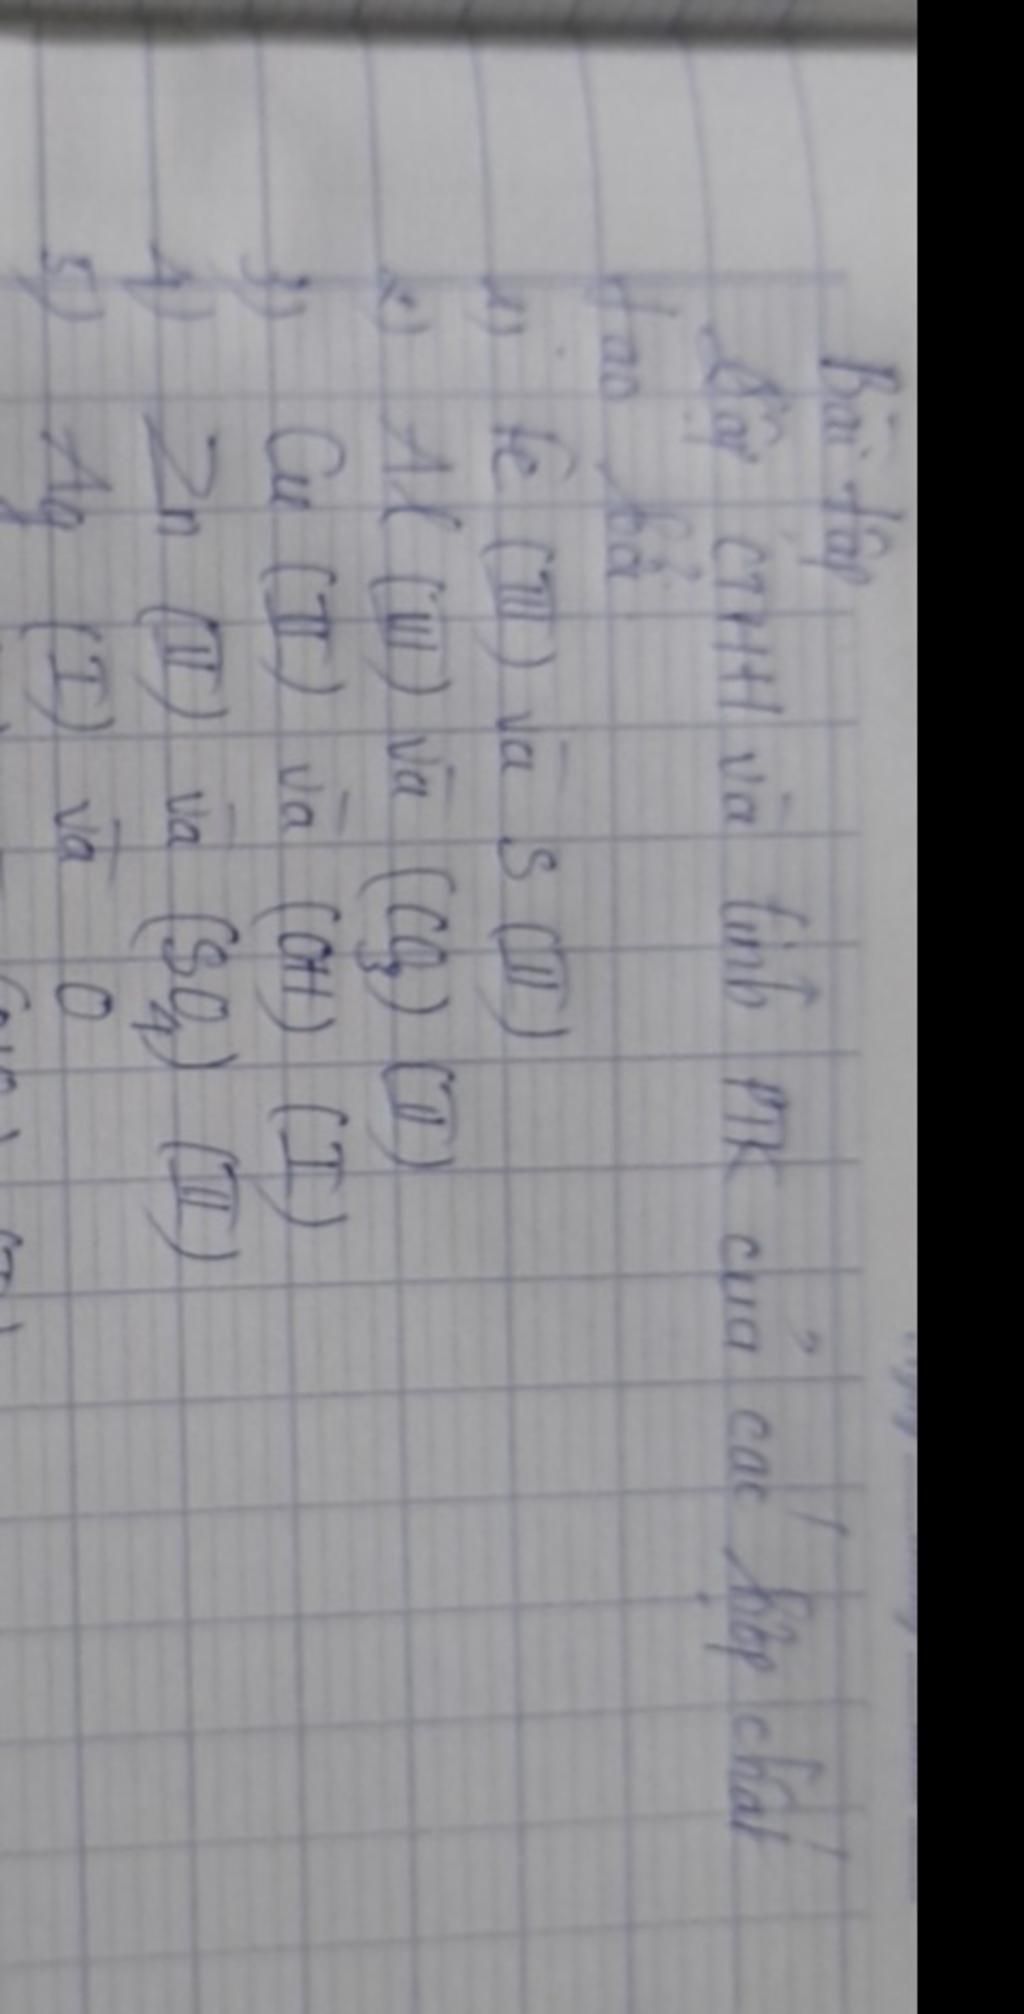 Bài tập
Lập CTHH và tính PTK của các hợp chất
tạo bởi
1) Fe (III) và S (II)
2) Al (III) và (CO₃) (II)
3) Cu (II) và (OH) (I)
4) Zn (II) và (SO₄) (II)
5) Ag (I) và O